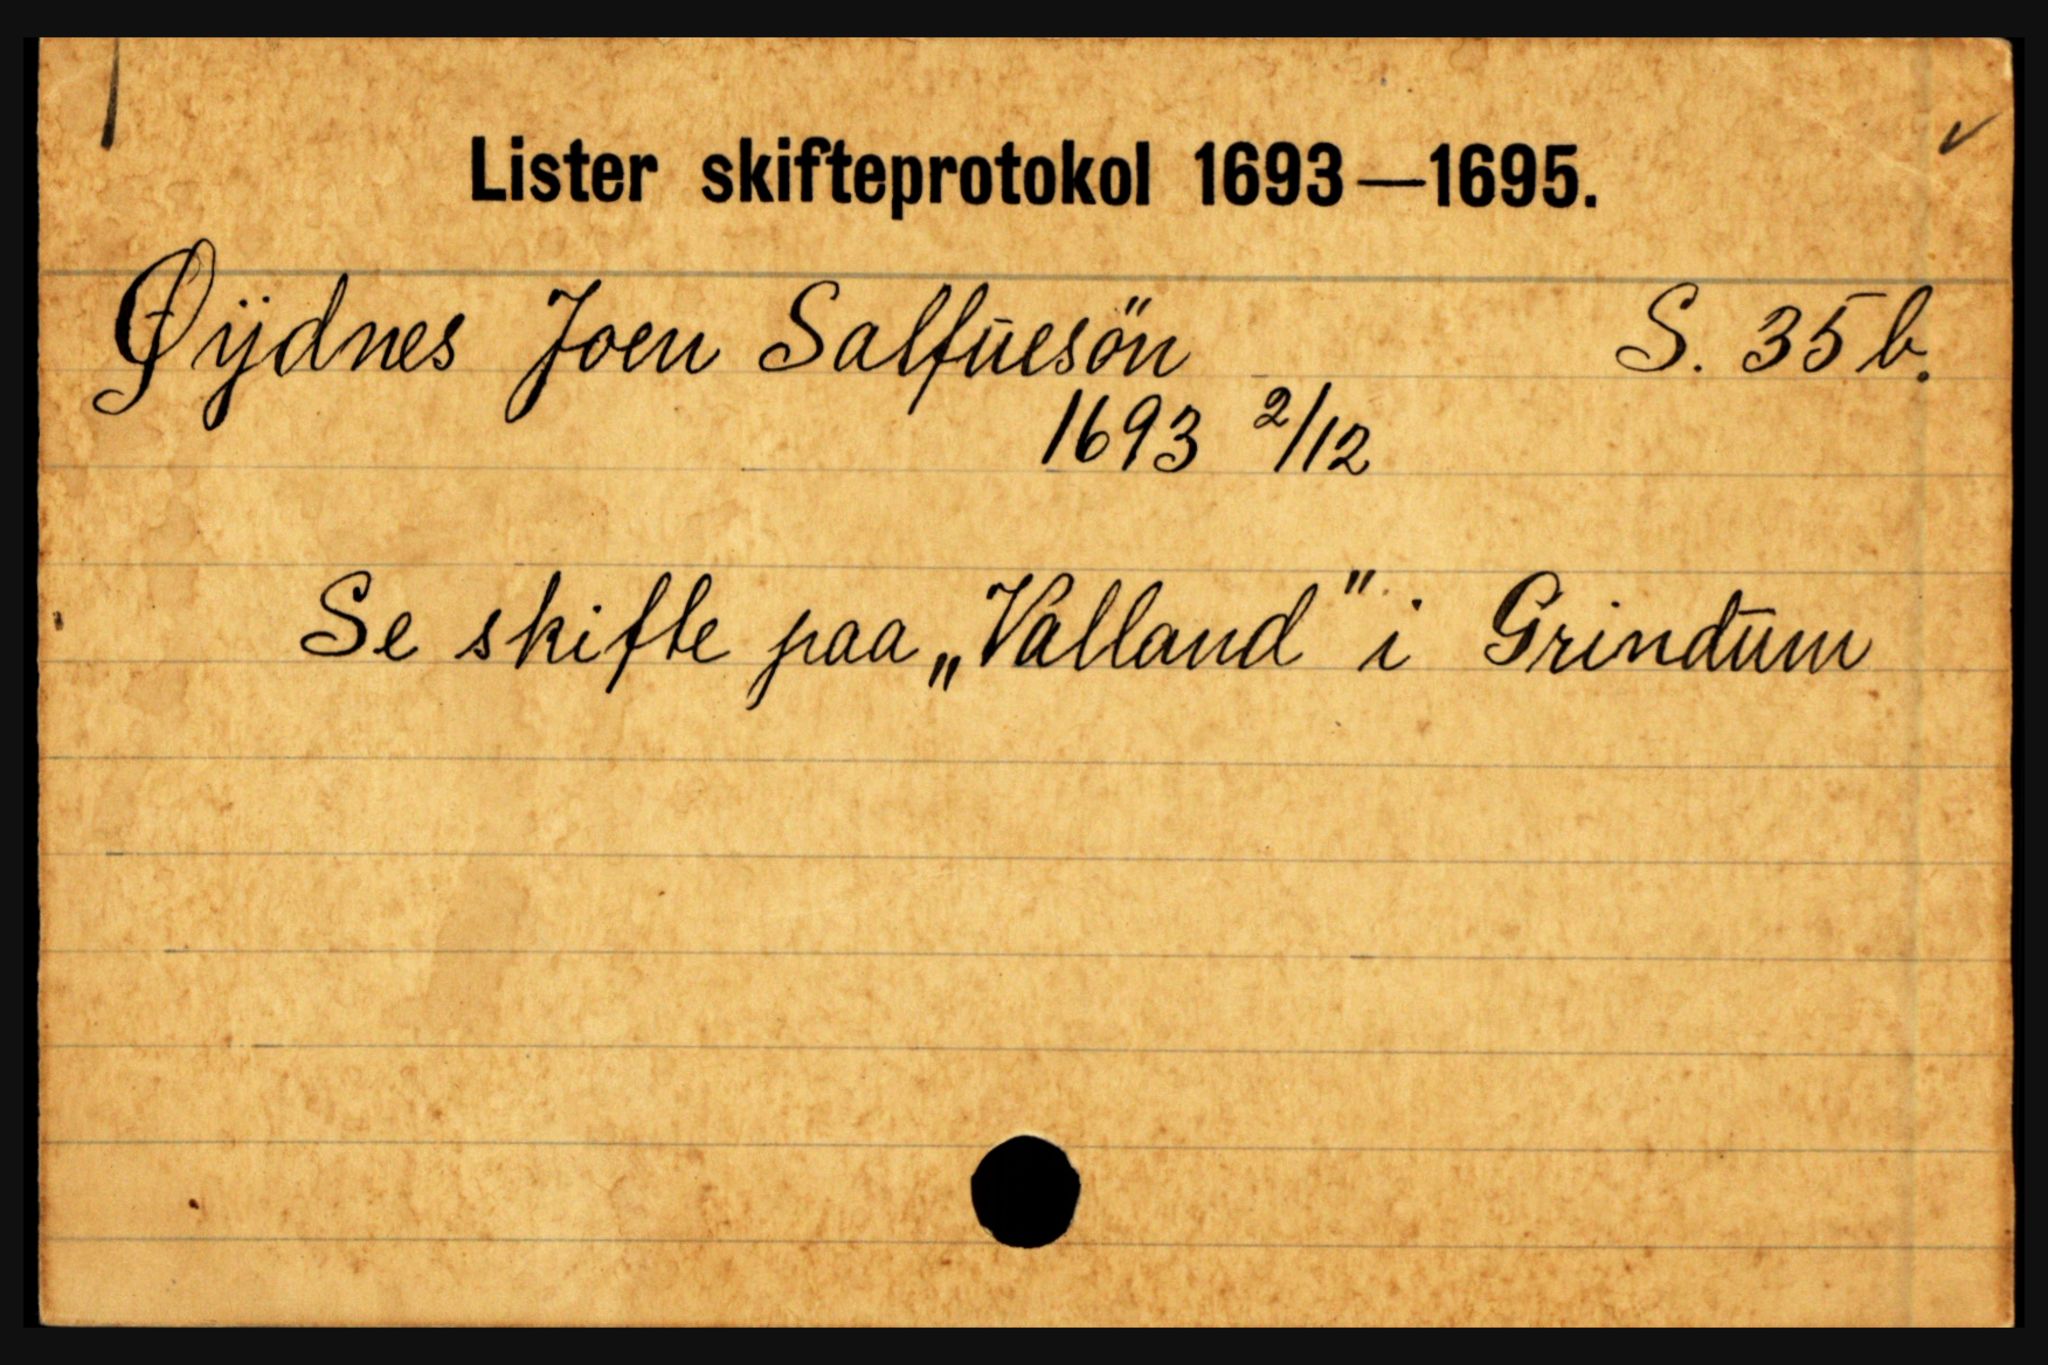 Lister skifteprotokol 1693—1695.
Øÿdnes Joen Salfuesön S. 35 b.
1693 2/12
Se skifte paa „Valland" i Grindum